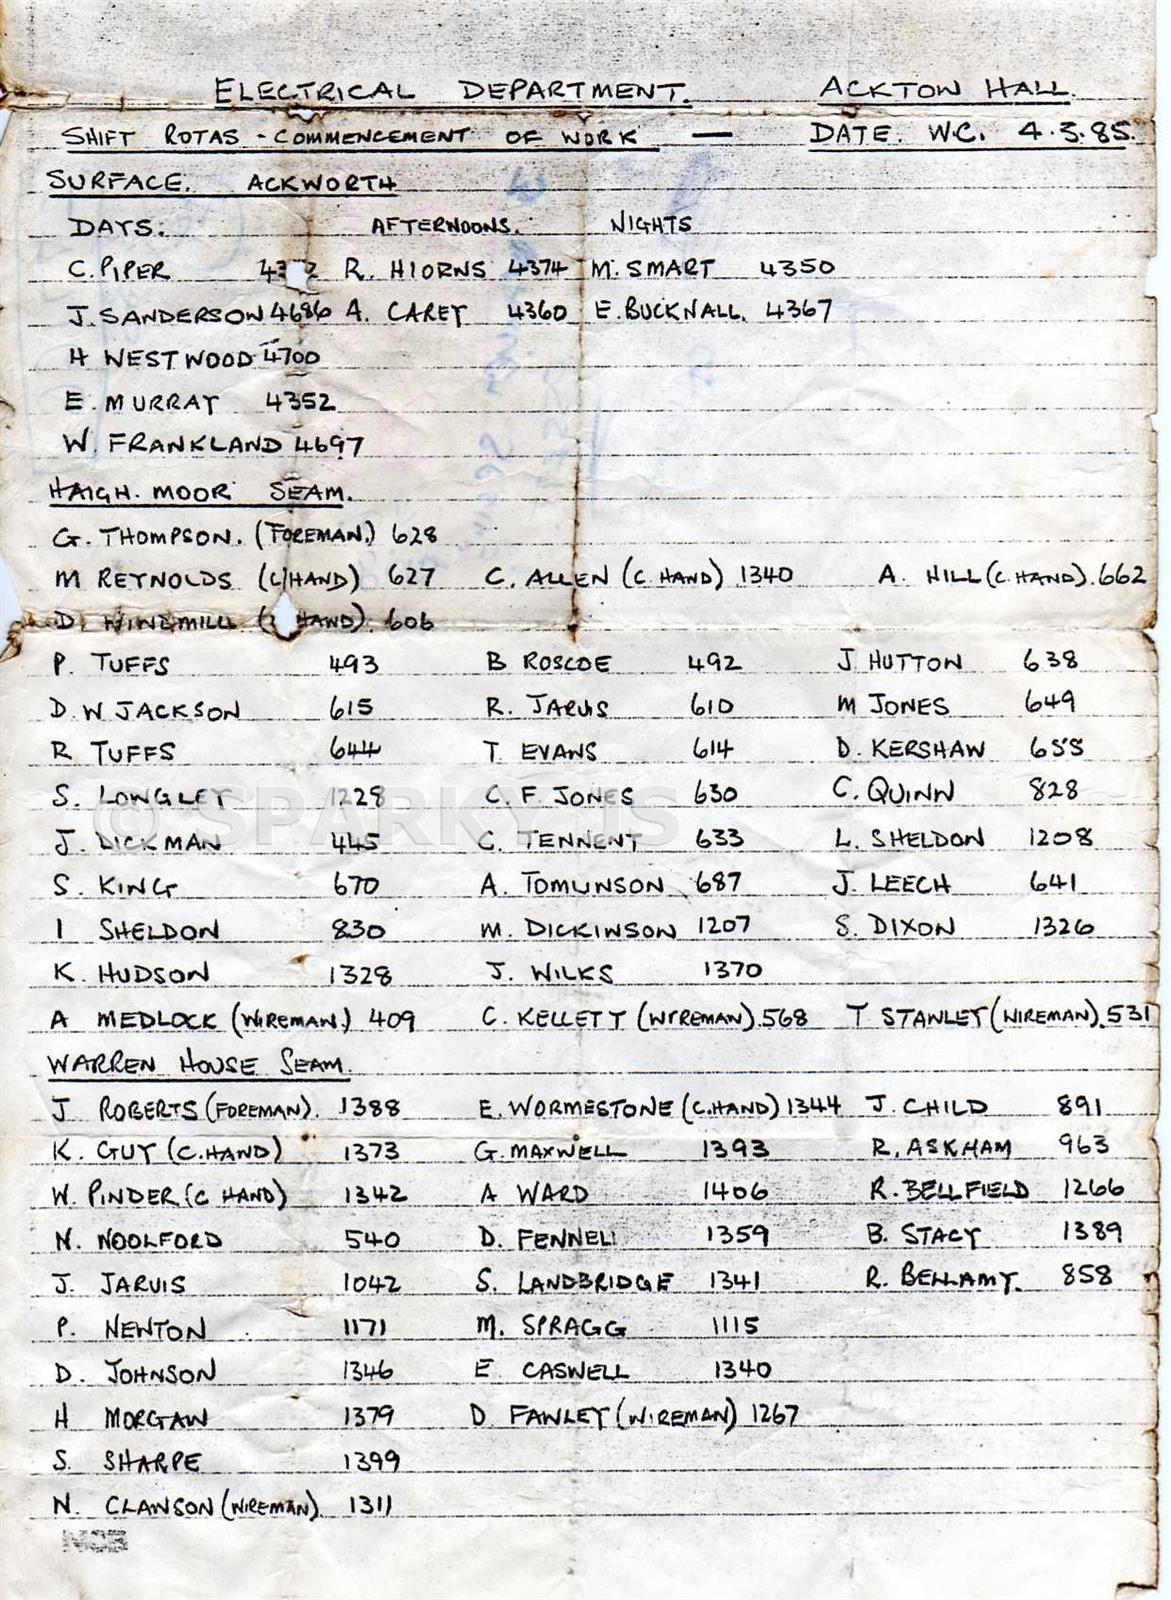 ELECTRICAL DEPARTMENT. ACKTON HALL.
SHIFT ROTAS - COMMENCEMENT OF WORK — DATE. W.C. 4.3.85.
SURFACE. ACKWORTH
DAYS: AFTERNOONS. NIGHTS
C. PIPER R. HIORNS 4374 M. SMART 4350
J. SANDERSON 4686 A. CAREY 4360 E. BUCKNALL. 4367
H WESTWOOD 4700
E. MURRAY 4352
W. FRANKLAND 4697
HAIGH. MOOR SEAM.
G. THOMPSON. (FOREMAN.) 628
M REYNOLDS (C/HAND) 627 C. ALLEN (C. HAND) 1340 A. HILL (C. HAND). 662
D. WINDMILL ( HAND). 606
P. TUFFS 493 B ROSCOE 492 J. HUTTON 638
D. W JACKSON 615 R. JARVIS 610 M JONES 649
R TUFFS 644 T. EVANS 614 D. KERSHAW 655
S. LONGLEY 1228 C. F. JONES 630 C. QUINN 828
© SPARKY JS
J. DICKMAN 445 C. TENNENT 633 L. SHELDON 1208
S. KING 670 A. TOMLINSON 687 J. LEECH 641
I SHELDON 830 M. DICKINSON 1207 S. DIXON 1326
K. HUDSON 1328 J. WILKS 1370
A MEDLOCK (WIREMAN.) 409 C. KELLETT (WIREMAN). 568 T STANLEY (WIREMAN). 531
WARREN HOUSE SEAM.
J ROBERTS (FOREMAN). 1388 E. WORMESTONE (C.HAND) 1344 J. CHILD 891
K. GUY (C.HAND) 1373 G. MAXWELL 1393 R. ASKHAM 963
W. PINDER (C HAND) 1342 A WARD 1406 R. BELLFIELD 1266
N. NOOLFORD 540 D. FENNELL 1359 B. STACY 1389
J. JARVIS 1042 S. LANDBRIDGE 1341 R. BELLAMY. 858
P. NEWTON 1171 M. SPRAGG 1115
D. JOHNSON 1346 E CASWELL 1340
H MORGAN 1379 D FAWLEY (WIREMAN) 1267
S. SHARPE 1399
N. CLAWSON (WIREMAN). 1311
NCB